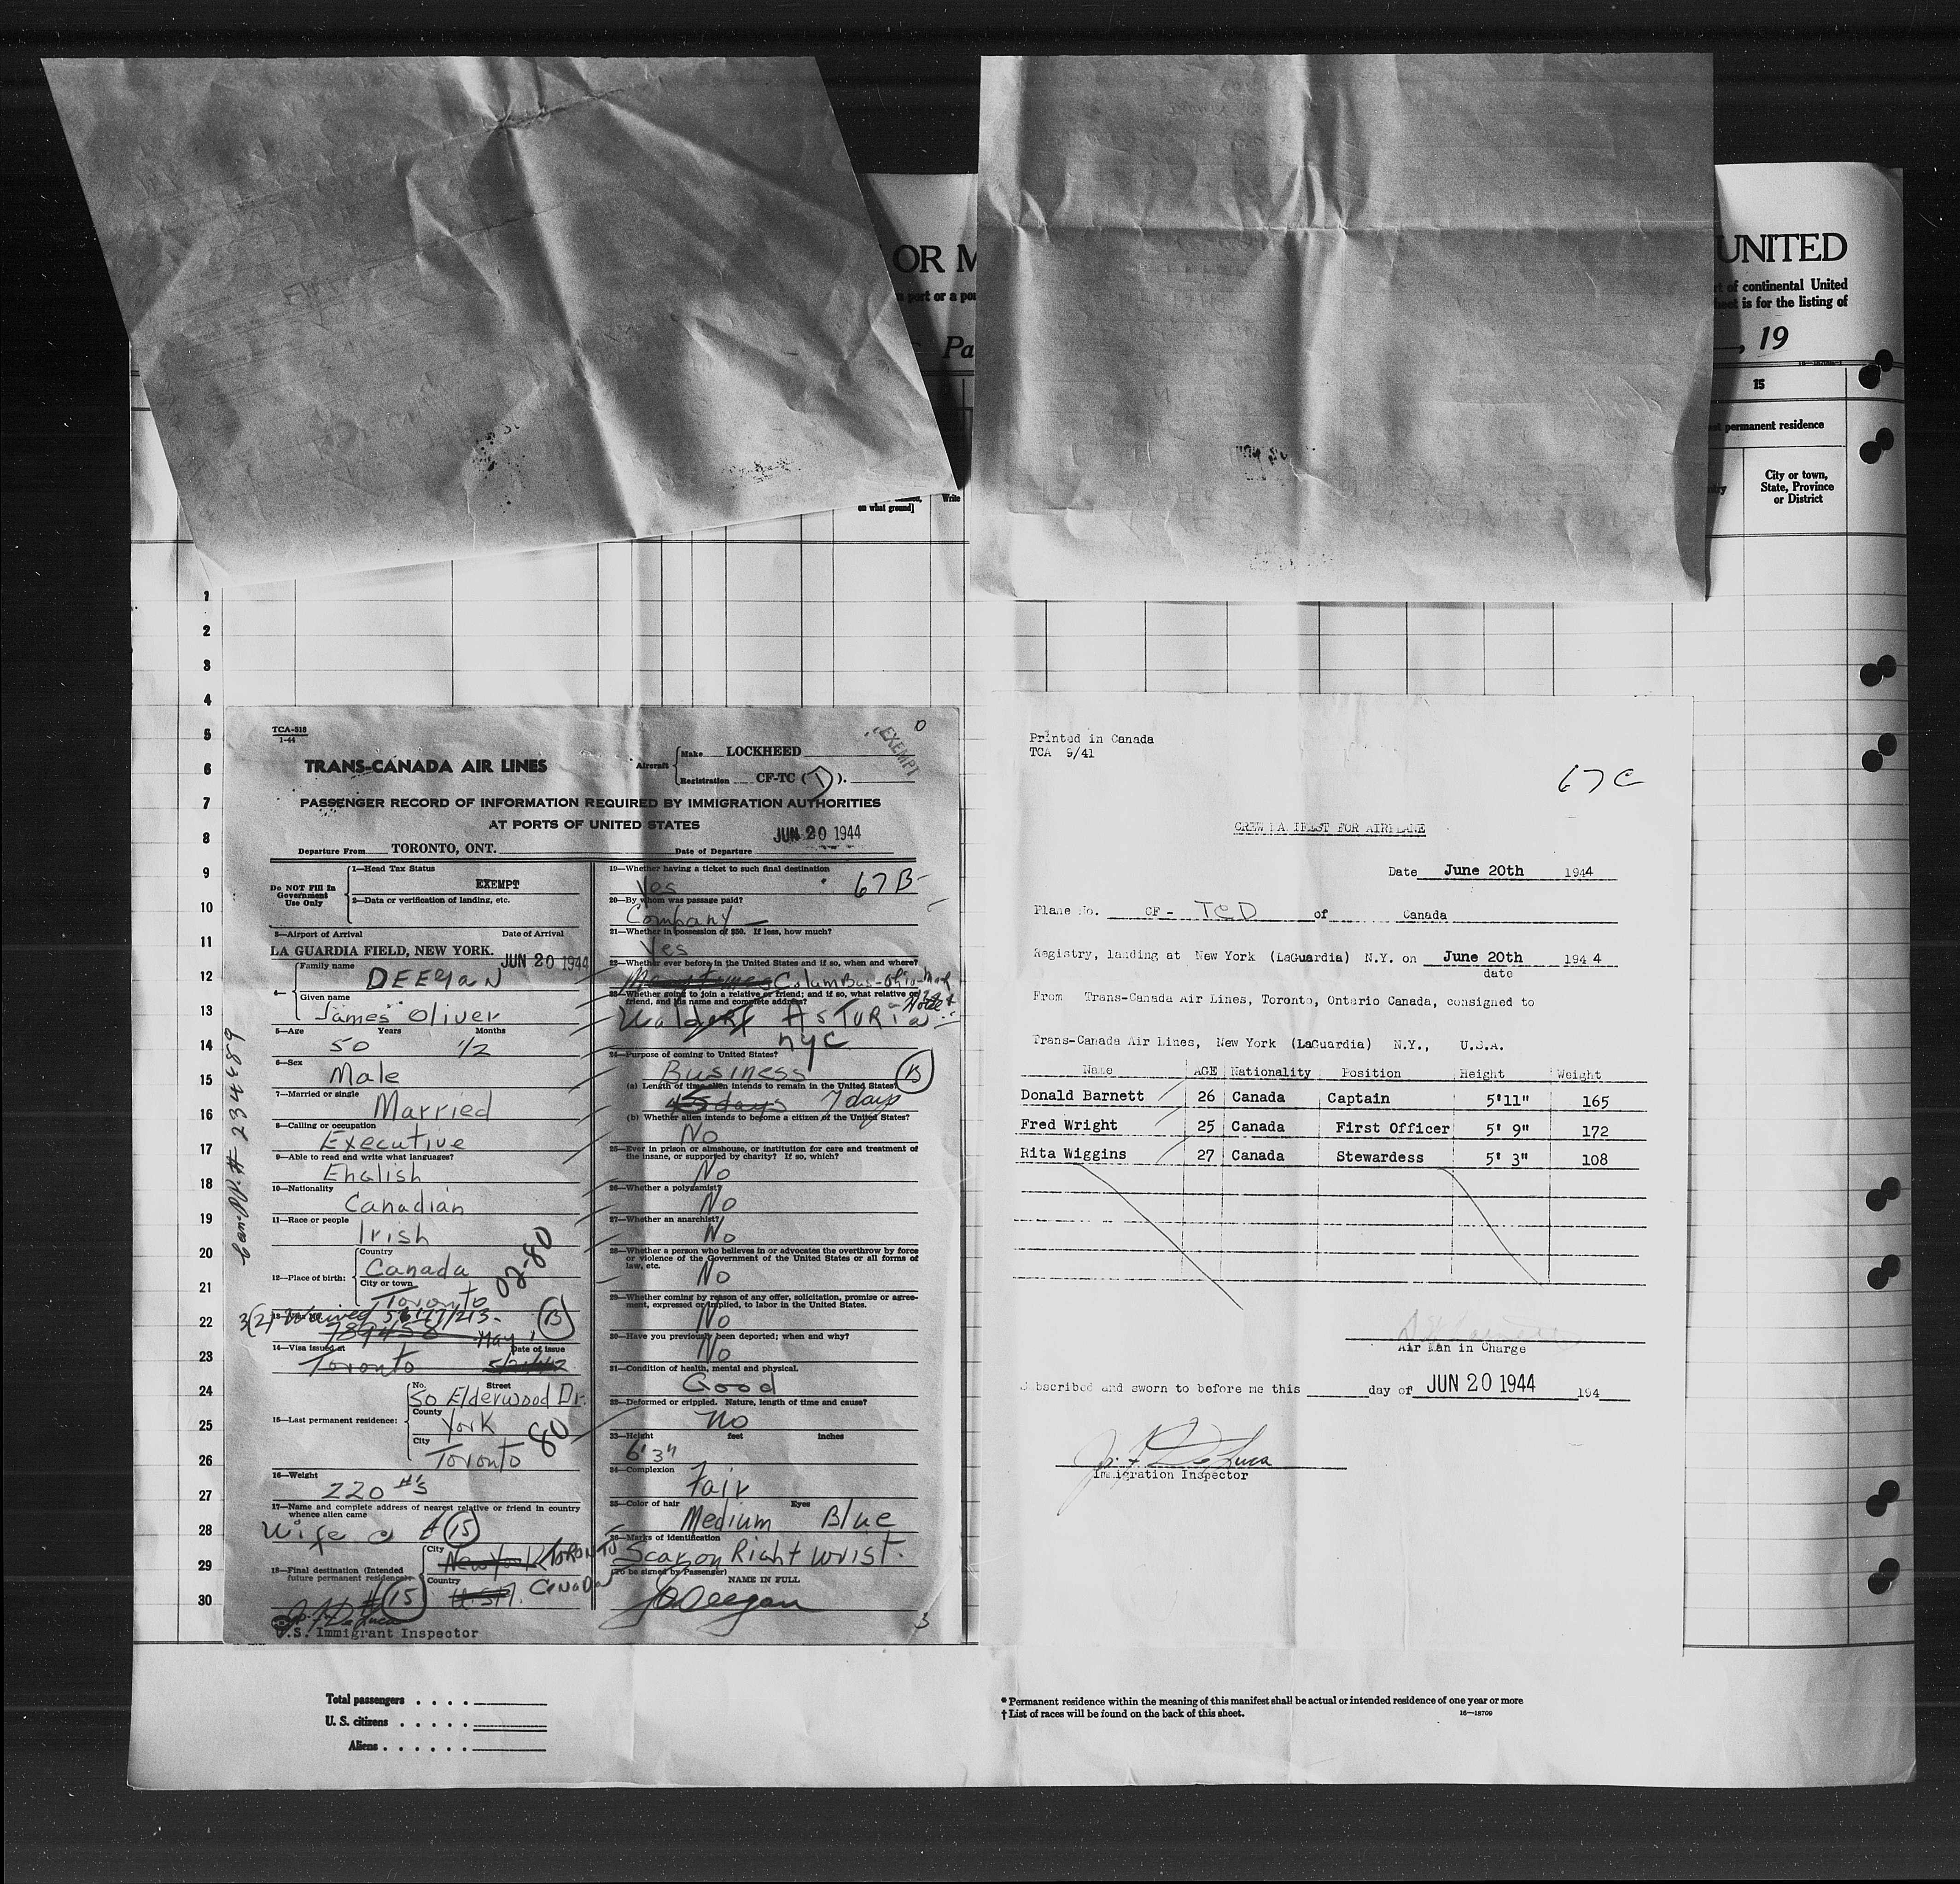 OR M
UNITED
port or a po
of continental United
is for the listing of
Pa
, 19
15
permanent residence
City or town,
State, Province
or District
on what ground]
Write
1
2
3
4
5
6
7
8
9
10
11
12
13
14
15
16
17
18
19
20
21
22
23
24
25
26
27
28
29
30
TCA-518
1-44
EXEMPT
TRANS-CANADA AIR LINES
Aircraft
Make LOCKHEED
Registration CF-TC (D).
PASSENGER RECORD OF INFORMATION REQUIRED BY IMMIGRATION AUTHORITIES
AT PORTS OF UNITED STATES
JUN 20 1944
Departure From TORONTO, ONT. Date of Departure
Do NOT Fill In
Government
Use Only
1—Head Tax Status
EXEMPT
2—Data or verification of landing, etc.
3—Airport of Arrival Date of Arrival
LA GUARDIA FIELD, NEW YORK. JUN 20 1944
4— Family name DEEGAN
Given name
James Oliver
5—Age Years Months
50 1/2
6—Sex
Male
7—Married or single
Married
8—Calling or occupation
Executive
9—Able to read and write what languages?
English
10—Nationality
Canadian
11—Race or people
Irish
12—Place of birth:
Country
Canada
City or town
Toronto
02-80
789458 May 1
B
14—Visa issued at Date of issue
Toronto
15—Last permanent residence:
No. Street
50 Elderwood Dr.
County
York
City
Toronto
80
16—Weight
220 #'s
17—Name and complete address of nearest relative or friend in country
whence alien came
Wife # 15
18—Final destination (Intended
future permanent residence)
City
New York TORONTO
Country
U.S.A. CANADA
# 15
U.S. Immigrant Inspector
19—Whether having a ticket to such final destination
Yes
67 B
20—By whom was passage paid?
Company
21—Whether in possession of $50. If less, how much?
Yes
22—Whether ever before in the United States and if so, when and where?
Many times Columbus-Ohio
23—Whether going to join a relative or friend; and if so, what relative or
friend, and his name and complete address?
Waldorf ASTORIA Hotel
nyc
24—Purpose of coming to United States?
Business
B
(a) Length of time alien intends to remain in the United States?
45 days 7 days
(b) Whether alien intends to become a citizen of the United States?
No
25—Ever in prison or almshouse, or institution for care and treatment of
the insane, or supported by charity? If so, which?
No
26—Whether a polygamist?
No
27—Whether an anarchist?
No
28—Whether a person who believes in or advocates the overthrow by force
or violence of the Government of the United States or all forms of
law, etc.
No
29—Whether coming by reason of any offer, solicitation, promise or agree-
ment, expressed or implied, to labor in the United States.
No
30—Have you previously been deported; when and why?
No
31—Condition of health, mental and physical.
Good
32—Deformed or crippled. Nature, length of time and cause?
No
33—Height feet inches
6' 3"
34—Complexion
Fair
35—Color of hair Eyes
Medium Blue
36—Marks of identification
Scar on Right wrist.
(To be signed by Passenger)
NAME IN FULL
JODeegan
3
Printed in Canada
TCA 9/41
67 C
CREW MANIFEST FOR AIRPLANE
Date June 20th 1944
Plane No. CF - TCD of Canada
Registry, landing at New York (LaGuardia) N.Y. on June 20th 1944
date
From Trans-Canada Air Lines, Toronto, Ontario Canada, consigned to
Trans-Canada Air Lines, New York (LaGuardia) N.Y., U.S.A.
Name AGE Nationality Position Height Weight
Donald Barnett 26 Canada Captain 5'11" 165
Fred Wright 25 Canada First Officer 5' 9" 172
Rita Wiggins 27 Canada Stewardess 5' 3" 108
Air Man in Charge
Subscribed and sworn to before me this day of JUN 20 1944 194
Jo. F. De Luca
Immigration Inspector
Total passengers . . . .
U. S. citizens . . . . .
Aliens . . . . . .
* Permanent residence within the meaning of this manifest shall be actual or intended residence of one year or more
† List of races will be found on the back of this sheet.
16—18709